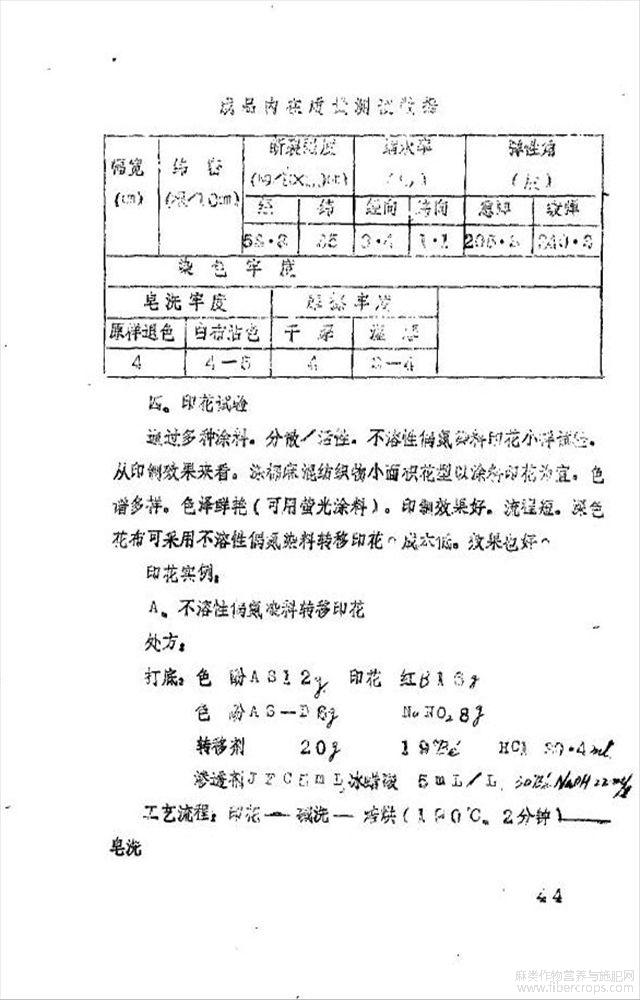 成品内在质量测试数据
幅宽 纬密 断裂强度 缩水率 弹性角
(cm) (根/10cm) (度)
经 纬 经向 纬向 急弹 缓弹
染色牢度
皂洗牢度 摩擦牢度
原样退色 白布沾色 干摩 湿摩
4 4—5 4 3—4
四。印花试验
通过多种涂料。分散/活性。不溶性偶氮染料印花小样试验。
从印制效果来看。涤棉麻混纺织物小面积花型以涂料印花为宜。色
谱多样。色泽鲜艳(可用萤光涂料)。印制效果好。流程短。深色
花布可采用不溶性偶氮染料转移印花。成本低。效果也好。
印花实例:
A、不溶性偶氮染料转移印花
处方:
打底:色酚AS12g 印花 红B13g
色酚AS—D8g NaNO₂8g
转移剂 20g 19°Bé HCl 30·4ml
渗透剂JFC5mL 冰醋酸 5mL/L 30°Bé NaOH 22ml/l
工艺流程:印花—碱洗—焙烘(190℃。2分钟)——
皂洗
44
麻类作物营养与施肥网
www.fibercrops.com